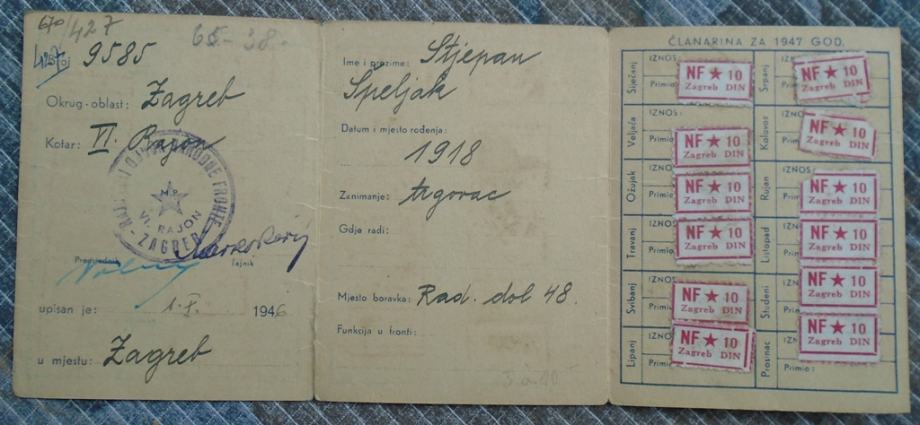 670/427
65-38-
9585
Okrug-oblast: Zagreb
Kotar: VI. Rajon
NARODNE FRONTE
N F
VI. RAJON
ZAGREB
Predsjednik
Tajnik
upisan je: 1.X. 1946
u mjestu: Zagreb
Ime i prezime: Stjepan
Špeljak
Datum i mjesto rođenja:
1918
Zanimanje: trgovac
Gdje radi:
Mjesto boravka: Rad. dol 48.
Funkcija u fronti:
ČLANARINA ZA 1947 GOD.
Siječanj
IZNOS:
Primio
NF ★ 10
Zagreb DIN
Srpanj
IZNOS:
Primio
NF ★ 10
Zagreb DIN
Veljača
IZNOS:
NF ★ 10
Zagreb DIN
Kolovoz
IZNOS:
NF ★ 10
Zagreb DIN
Ožujak
IZNOS:
Primio
NF ★ 10
Zagreb DIN
Rujan
IZNOS:
Primio
NF ★ 10
Zagreb DIN
Travanj
IZNOS:
Primio
NF ★ 10
Zagreb DIN
Listopad
IZNOS:
Primio
NF ★ 10
Zagreb DIN
Svibanj
IZNOS:
Primio
NF ★ 10
Zagreb DIN
Studeni
IZNOS:
Primio
NF ★ 10
Zagreb DIN
Lipanj
IZNOS:
Primio
NF ★ 10
Zagreb DIN
Prosinac
IZNOS:
Primio:
NF ★ 10
Zagreb DIN